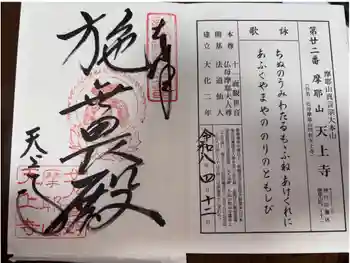 奉拝
施無畏殿
天上寺
第廿二番 摩耶山 天上寺
摩耶山真言宗大本山
詠歌
ちぬのうみ わたるもゝふね あけくれに
あふぐやまやの のりのともしび
本尊 十一面観世音
仏母摩耶夫人尊
開基 法道仙人
建立 大化二年
令和八 四 十二